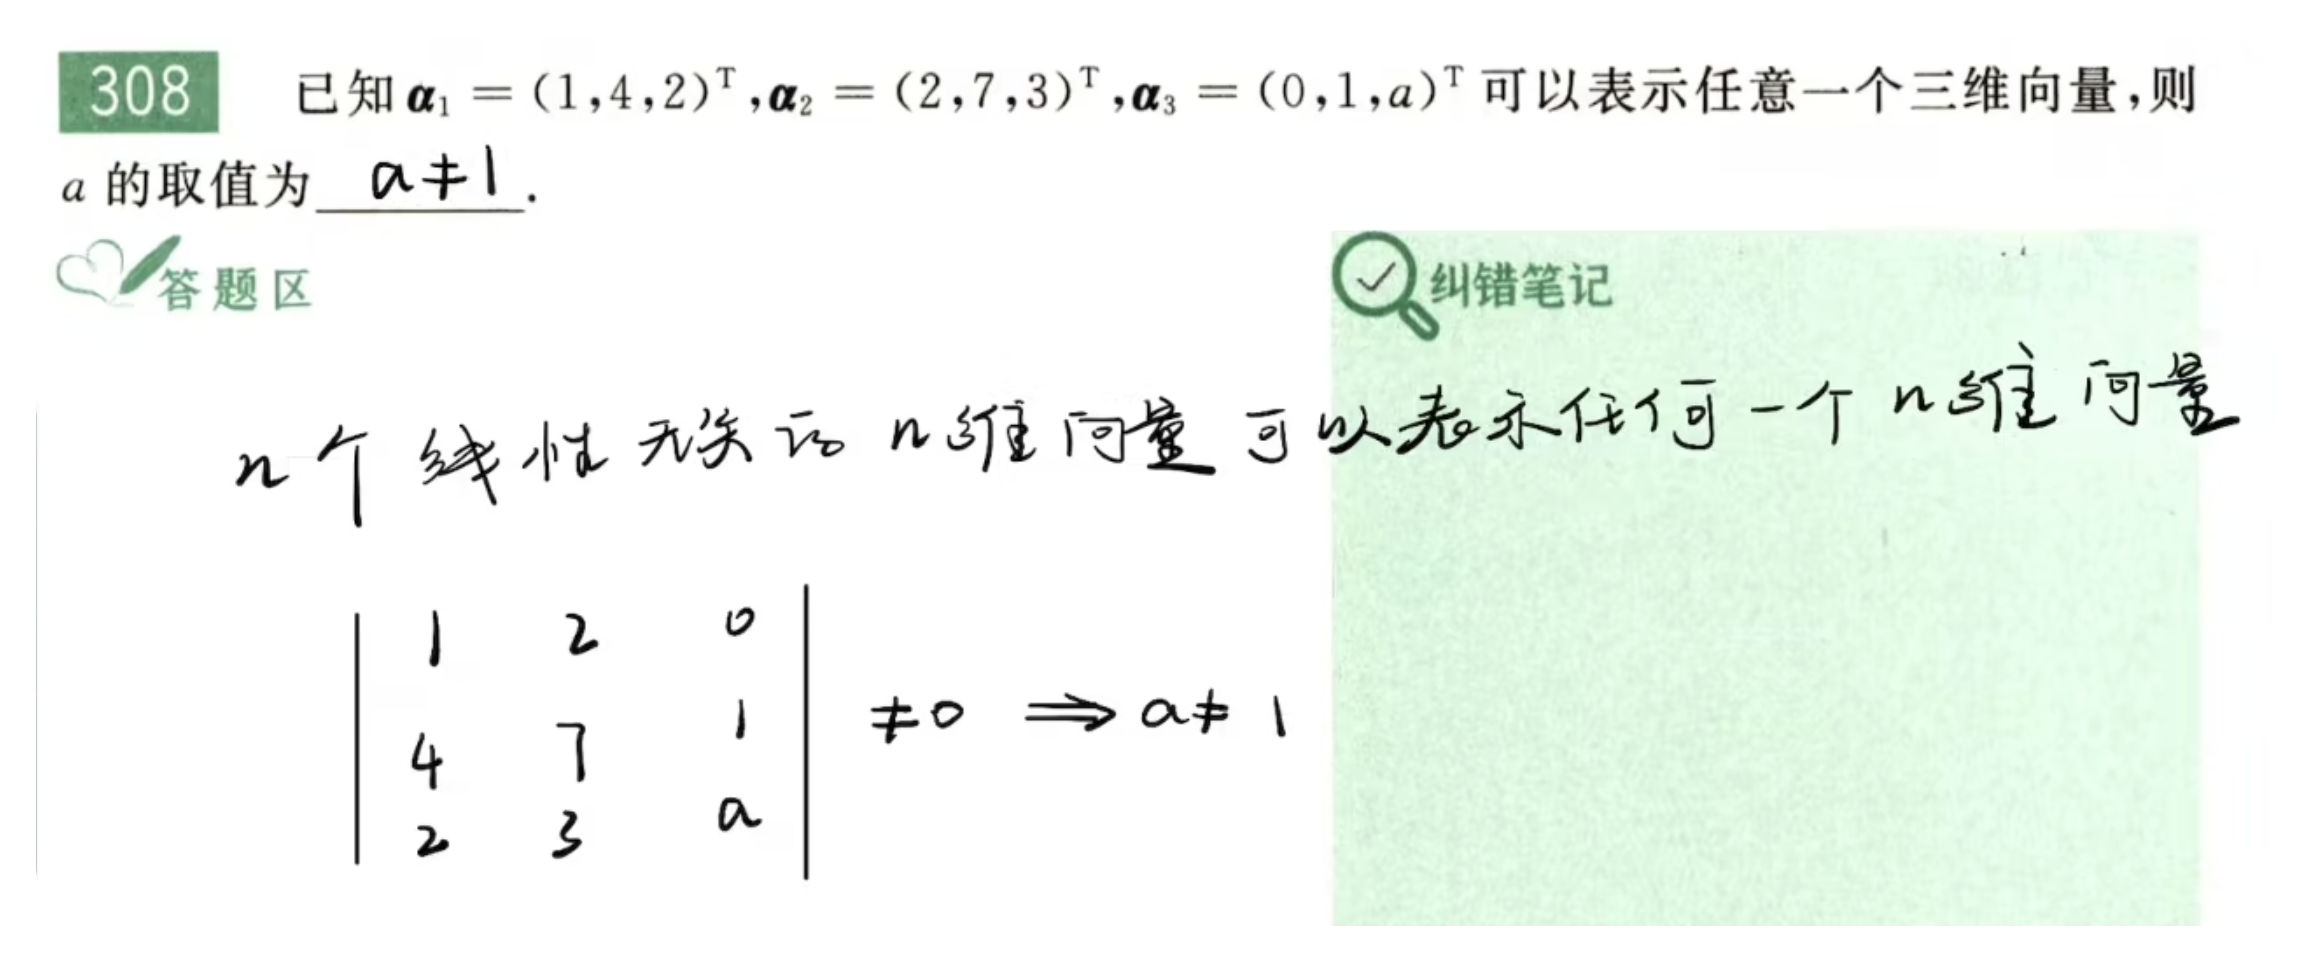 308 已知 α₁ = (1,4,2)ᵀ,α₂ = (2,7,3)ᵀ,α₃ = (0,1,a)ᵀ 可以表示任意一个三维向量,则
a 的取值为 a≠1 .
答题区
纠错笔记
n个线性无关的n维向量可以表示任何一个n维向量
1 2 0
4 7 1 ≠0 ⇒ a≠1
2 3 a